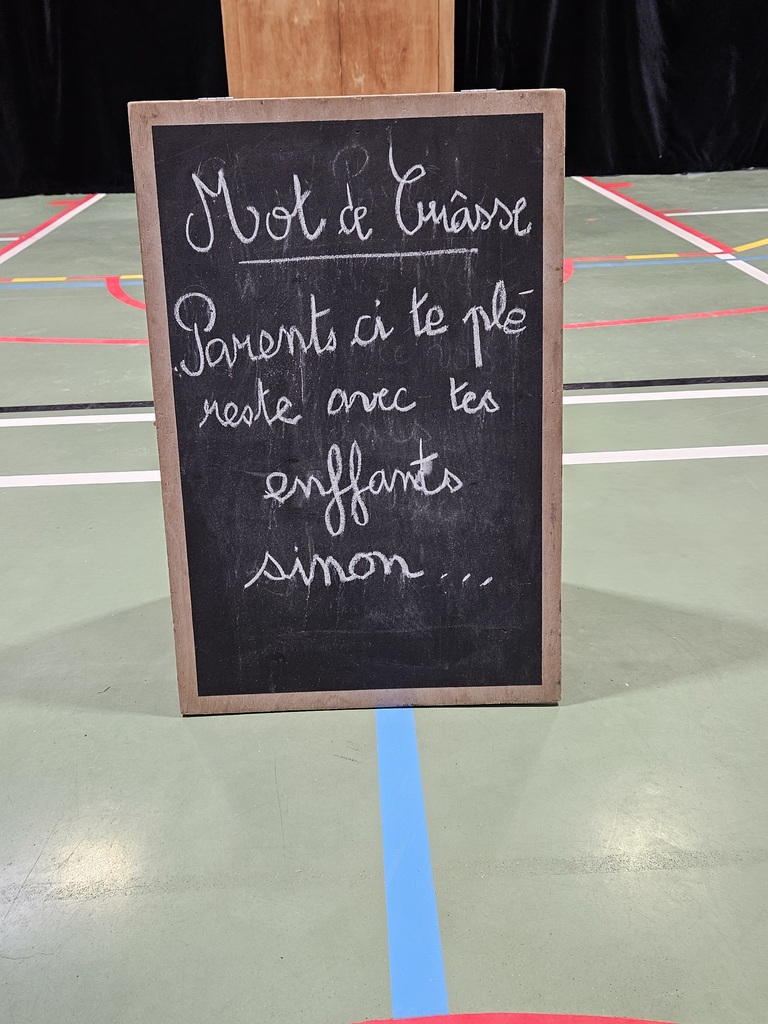 Mot de Cruâsse
Parents ci te plé
reste avec tes
enffants
sinon ...